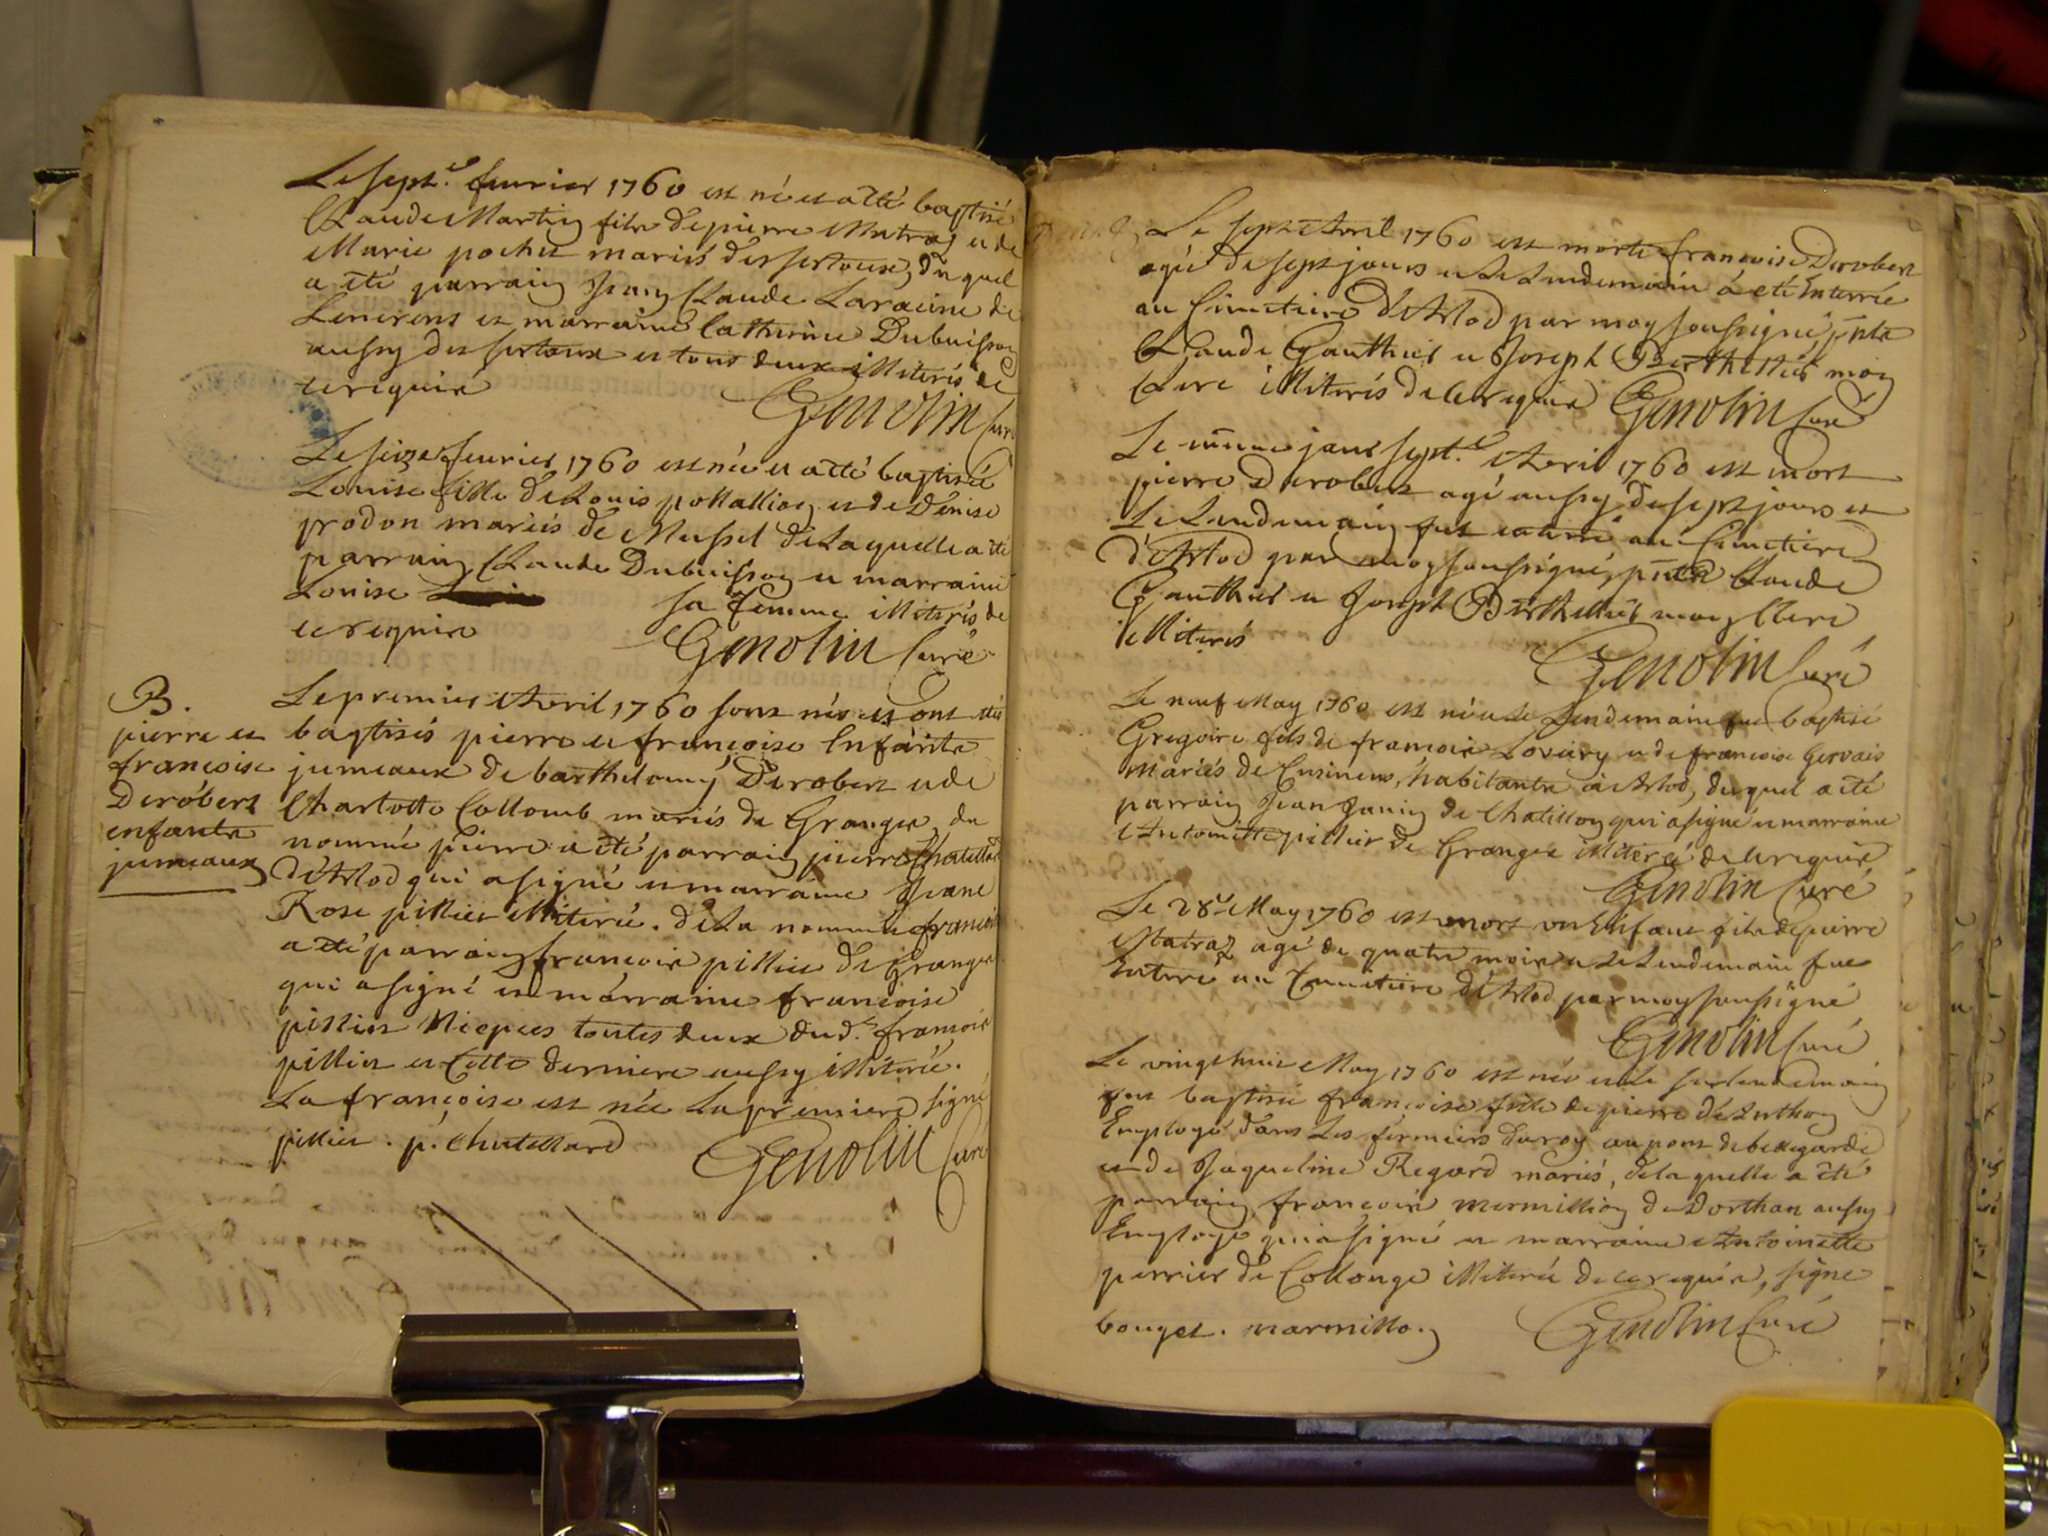 Le sept.e fevrier 1760 est né et a été baptisé
Claude Martin fils de pierre Matraz et de
Marie pochet mariés des sertoux, du quel
a été parrain Jean Claude Laracine de
et marraine Catherine Dubuisson
aussy des sertoux et tous deux illiterés de
ce requis
Genolin Curé
Le seize fevrier 1760 est née et a été baptisée
Louise fille de Louis pollallion et de Denise
prodon mariés de Mussel de laquelle a été
parrain Claude Dubuisson et marraine
Louise sa femme illiterés de
ce requis
Genolin Curé
B.
pierre et
françoise
Derobert
enfants
jumeaux
Le premier Avril 1760 sont nés et ont étés
baptisés pierre et françoise Enfants
jumeaux de barthelomy Derobert et de
Charlotte Collomb mariés de Granges, du
nommé pierre a été parrain pierre Chatellard
d'Arlod qui a signé et marraine Jeane
Rose pillier illiterée. de la nommée françoise
a été parrain françois pillier de Granges
qui a signé et marraine françoise
pillier Niepces toutes deux dud.t françois
pillier et Cette derniere aussy illiterée.
La françoise est née La premiere, signé
pillier . p. Chatellard
Genolin Curé
Le sept Avril 1760 est morte françoise Derobert
agée de sept jours et Le Lendemain a été Enterrée
au Cimetiere d'Arlod par moy soussigné, pnts
Claude Gauthier et Joseph Berthellier moy
Clerc illiterés de ce requis Genolin Curé
Le même jour sept.e Avril 1760 est mort
pierre Derobert agé aussy de sept jours et
Le Lendemain fut enterré au Cimetiere
d'Arlod par moy soussigné, pnts Claude
Gauthier et Joseph Berthellier moy Clerc
illiterés
Genolin Curé
Le neuf May 1760 est né et Le Lendemain fut baptisé
Gregoire fils de françois Lovery et de françoise Gervais
mariés de Cusinens, habitants à Arlod, duquel a été
parrain Jean Janin de Chatillon qui a signé et marraine
Antoinette pillier de Granges illiterée de ce requis
Genolin Curé
Le 28e May 1760 est mort un Enfant fils de pierre
Matraz agé de quatre mois et Le Lendemain fut
Enterré au Cimetiere d'Arlod par moy soussigné
Genolin Curé
Le vingt huit May 1760 est née et Le surlendemain
fut baptisée françoise fille de pierre
Employé dans Les fermiers du roy au pont de bellegarde
et de Jaqueline Regard mariés, de laquelle a été
parrain françois Marmillion de Dorthan aussy
Employé qui a signé et marraine Antoinette
perrier de Collonge illiterée de ce requis, signé
bouget . marmillon
Genolin Curé